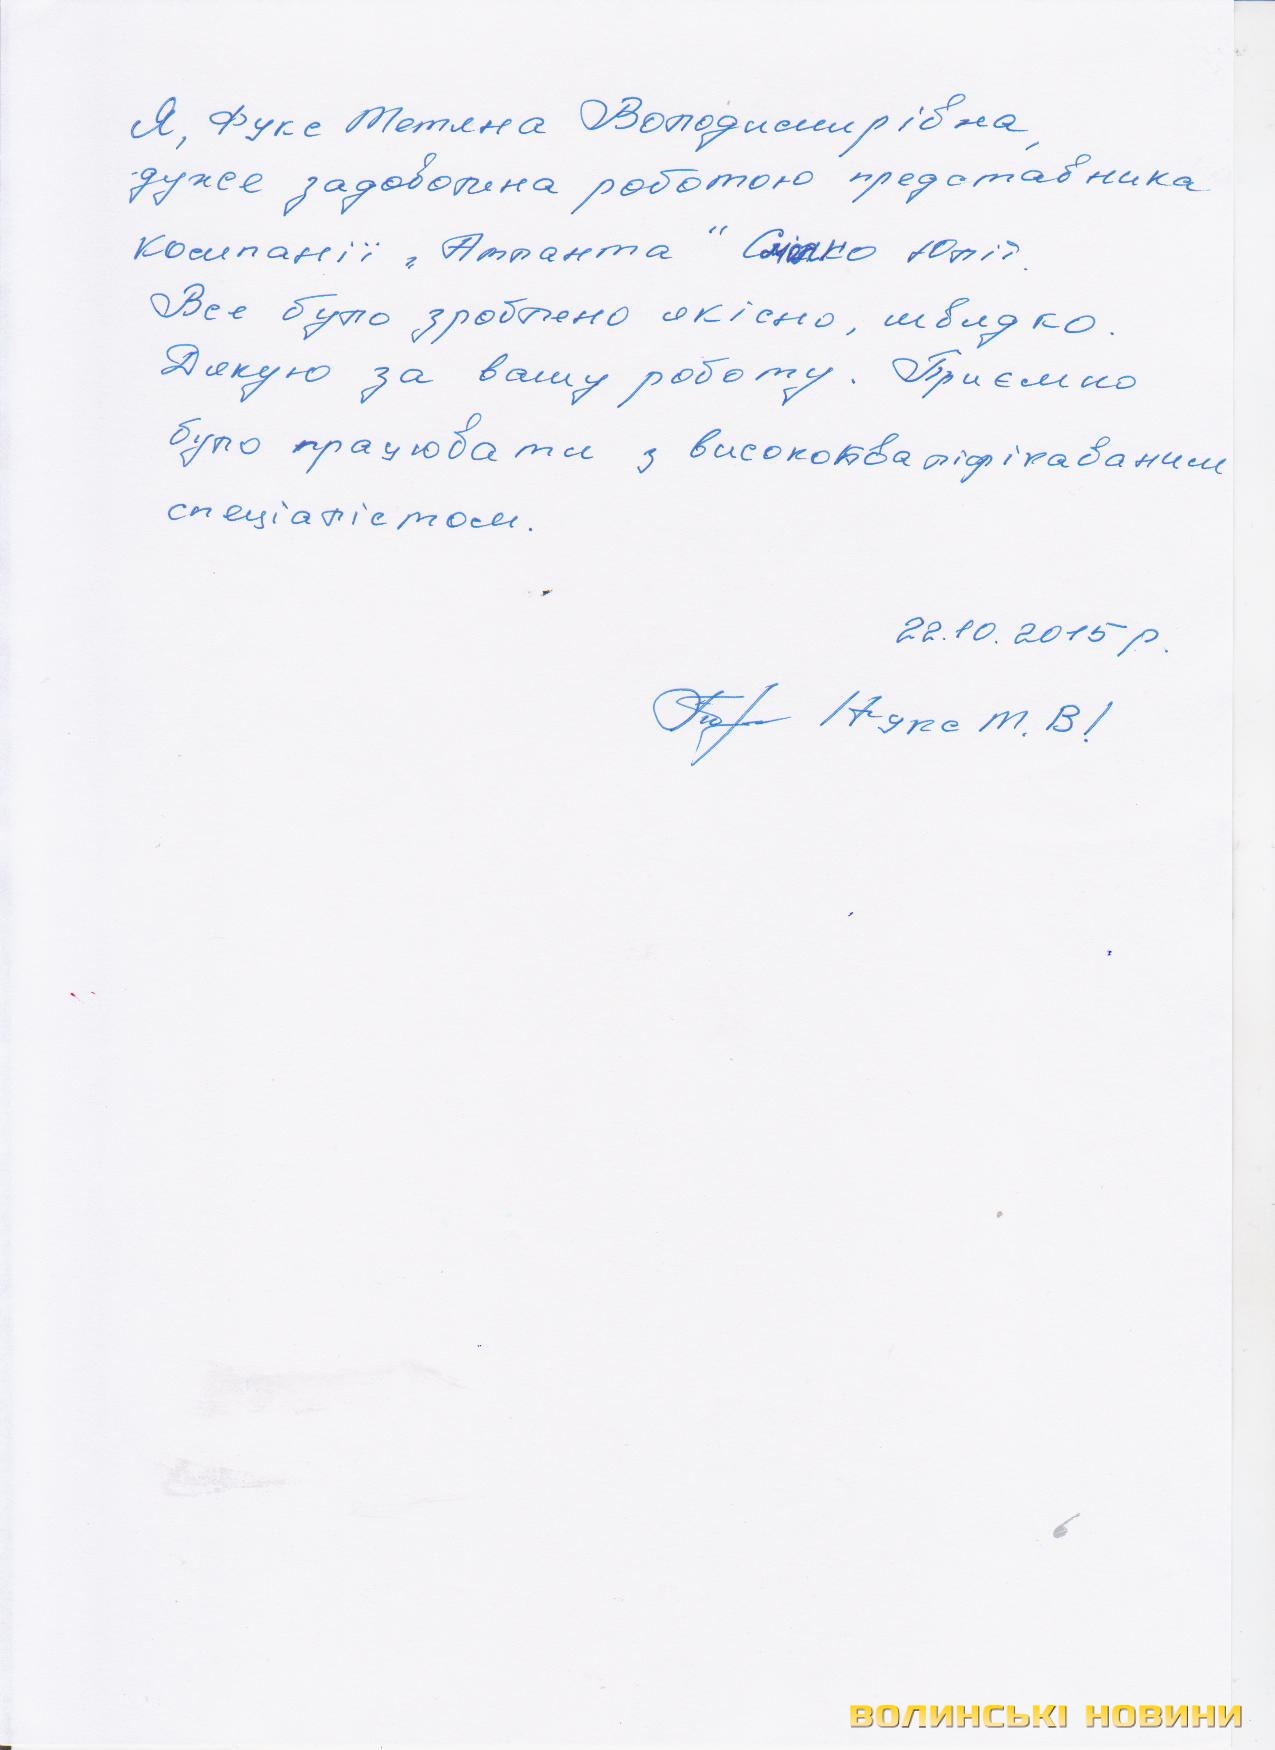 Я, Фукс Тетяна Володимирівна,
дуже задоволена роботою представника
компанії „Атланта" Сміяко Юлії.
Все було зроблено якісно, швидко.
Дякую за вашу роботу. Приємно
було працювати з висококваліфікаваним
спеціалістом.
22.10.2015 р.
/Фукс Т. В/
6
ВОЛИНСЬКІ НОВИНИ